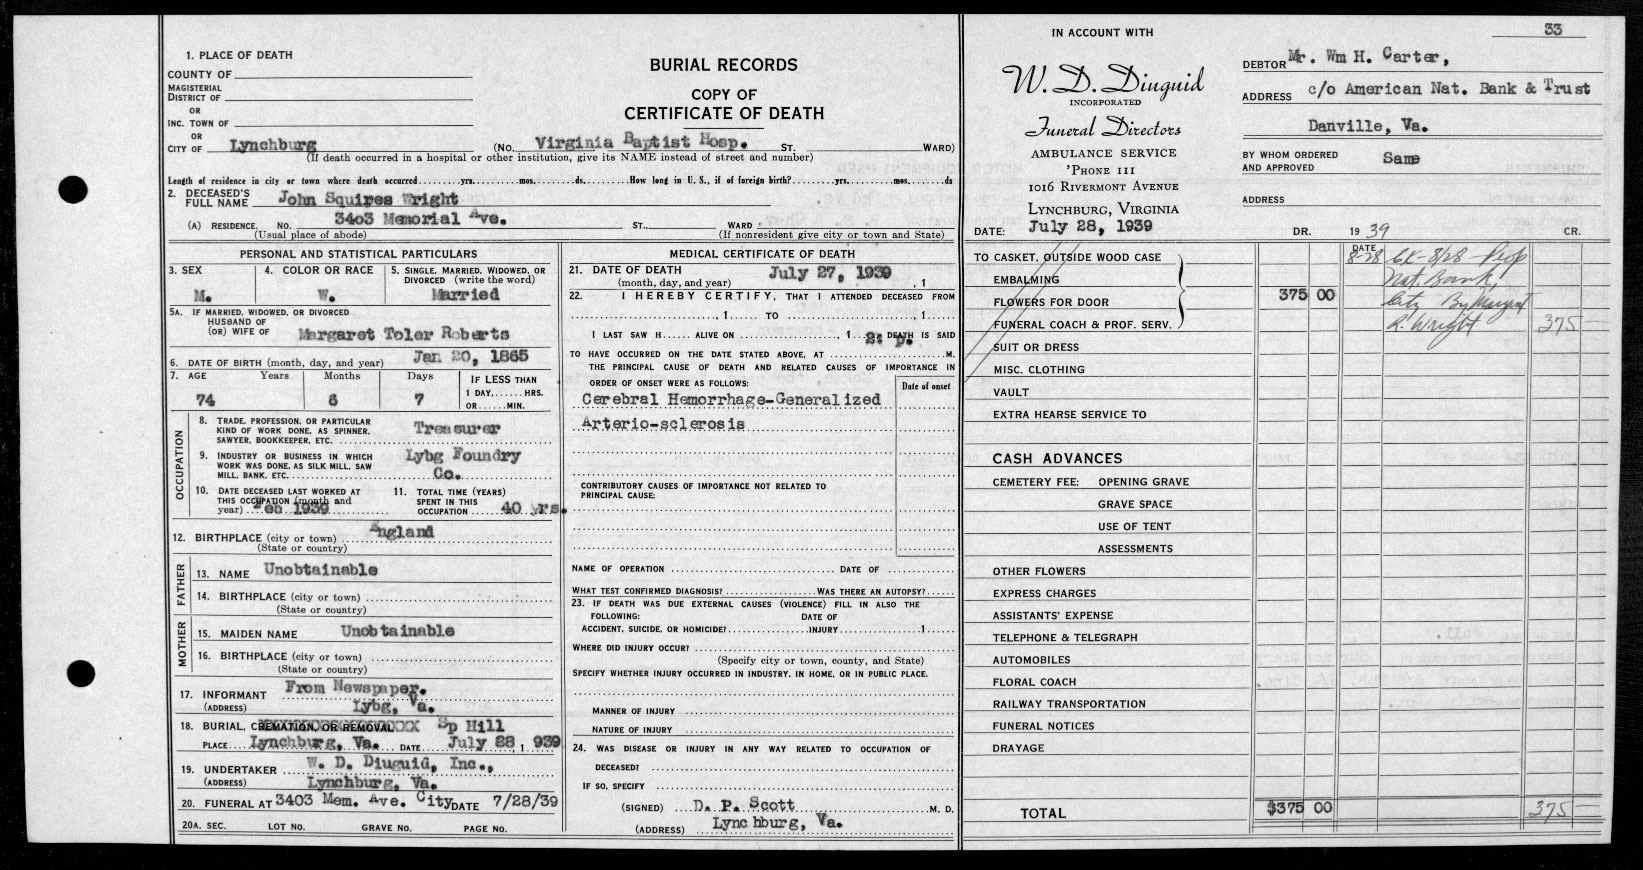 1. PLACE OF DEATH
COUNTY OF
MAGISTERIAL
DISTRICT OF
OR
INC. TOWN OF
OR
CITY OF Lynchburg
BURIAL RECORDS
COPY OF
CERTIFICATE OF DEATH
(No. Virginia Baptist Hosp. ST. WARD)
(If death occurred in a hospital or other institution, give its NAME instead of street and number)
Length of residence in city or town where death occurred yrs. mos. ds. How long in U. S., if of foreign birth? yrs. mos. ds
2. DECEASED'S
FULL NAME John Squires Wright
(A) RESIDENCE. No. 3403 Memorial Ave. ST., WARD
(Usual place of abode) (If nonresident give city or town and State)
PERSONAL AND STATISTICAL PARTICULARS
3. SEX M.
4. COLOR OR RACE W.
5. SINGLE, MARRIED, WIDOWED, OR
DIVORCED (write the word)
Married
5A. IF MARRIED, WIDOWED, OR DIVORCED
HUSBAND OF
(OR) WIFE OF Margaret Toler Roberts
6. DATE OF BIRTH (month, day, and year) Jan 20, 1865
7. AGE Years Months Days IF LESS THAN
1 DAY, HRS.
OR MIN.
74 6 7
OCCUPATION
8. TRADE, PROFESSION, OR PARTICULAR
KIND OF WORK DONE, AS SPINNER,
SAWYER, BOOKKEEPER, ETC. Treasurer
9. INDUSTRY OR BUSINESS IN WHICH
WORK WAS DONE, AS SILK MILL, SAW
MILL, BANK, ETC. Lybg Foundry
Co.
10. DATE DECEASED LAST WORKED AT
THIS OCCUPATION (month and
year) Feb 1939
11. TOTAL TIME (YEARS)
SPENT IN THIS
OCCUPATION 40 yrs.
12. BIRTHPLACE (city or town) England
(State or country)
FATHER
13. NAME Unobtainable
14. BIRTHPLACE (city or town)
(State or country)
MOTHER
15. MAIDEN NAME Unobtainable
16. BIRTHPLACE (city or town)
(State or country)
17. INFORMANT From Newspaper.
(ADDRESS) Lybg, Va.
18. BURIAL, CREMATION, OR REMOVAL Sp Hill
PLACE Lynchburg, Va. DATE July 28, 1939
19. UNDERTAKER W. D. Diuguid, Inc.,
(ADDRESS) Lynchburg, Va.
20. FUNERAL AT 3403 Mem. Ave. City DATE 7/28/39
20A. SEC. LOT NO. GRAVE NO. PAGE NO.
MEDICAL CERTIFICATE OF DEATH
21. DATE OF DEATH July 27, 1939
(month, day, and year) , 1
22. I HEREBY CERTIFY, THAT I ATTENDED DECEASED FROM
, 1 TO , 1
I LAST SAW H ALIVE ON , 1 DEATH IS SAID
TO HAVE OCCURRED ON THE DATE STATED ABOVE, AT M.
THE PRINCIPAL CAUSE OF DEATH AND RELATED CAUSES OF IMPORTANCE IN
ORDER OF ONSET WERE AS FOLLOWS: Date of onset
Cerebral Hemorrhage-Generalized
Arterio-sclerosis
CONTRIBUTORY CAUSES OF IMPORTANCE NOT RELATED TO
PRINCIPAL CAUSE:
NAME OF OPERATION DATE OF
WHAT TEST CONFIRMED DIAGNOSIS? WAS THERE AN AUTOPSY?
23. IF DEATH WAS DUE EXTERNAL CAUSES (VIOLENCE) FILL IN ALSO THE
FOLLOWING: DATE OF
ACCIDENT, SUICIDE, OR HOMICIDE? INJURY 1
WHERE DID INJURY OCCUR?
(Specify city or town, county, and State)
SPECIFY WHETHER INJURY OCCURRED IN INDUSTRY, IN HOME, OR IN PUBLIC PLACE.
MANNER OF INJURY
NATURE OF INJURY
24. WAS DISEASE OR INJURY IN ANY WAY RELATED TO OCCUPATION OF
DECEASED?
IF SO, SPECIFY
(SIGNED) D. P. Scott M. D.
(ADDRESS) Lynchburg, Va.
33
IN ACCOUNT WITH
W. D. Diuguid
INCORPORATED
Funeral Directors
AMBULANCE SERVICE
'PHONE 111
1016 RIVERMONT AVENUE
LYNCHBURG, VIRGINIA
DATE: July 28, 1939
DEBTOR Mr. Wm H. Carter,
ADDRESS c/o American Nat. Bank & Trust
Danville, Va.
BY WHOM ORDERED
AND APPROVED Same
ADDRESS
DR. 1939 CR.
DATE
TO CASKET, OUTSIDE WOOD CASE 8-28 CK-8/28-Peop
EMBALMING Nat. Bank,
FLOWERS FOR DOOR 375 00 By Margaret
FUNERAL COACH & PROF. SERV. R. Wright 375 —
SUIT OR DRESS
MISC. CLOTHING
VAULT
EXTRA HEARSE SERVICE TO
CASH ADVANCES
CEMETERY FEE: OPENING GRAVE
GRAVE SPACE
USE OF TENT
ASSESSMENTS
OTHER FLOWERS
EXPRESS CHARGES
ASSISTANTS' EXPENSE
TELEPHONE & TELEGRAPH
AUTOMOBILES
FLORAL COACH
RAILWAY TRANSPORTATION
FUNERAL NOTICES
DRAYAGE
TOTAL $375 00 375 —